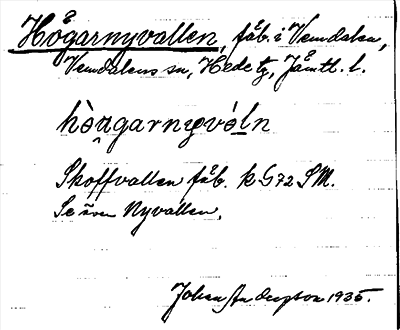 Högarnyvallen, fäb. i Vemdalen,
Vemdalens sn, Hede tg, Jämtl. l.
hòu̯garnyvél̲n
Skoffvallen fäb. k G72 SM.
Se även Nyvallen.
Johan Anderson 1935.